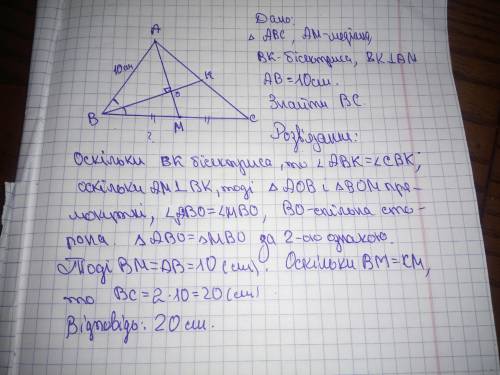 Дано:
△ ABC, AM-медіана,
BK-бісектриса, BK⊥AM
AB=10см.
Знайти BC
Розв'язання:
A
10см
K
O
B
M
C
?
Оскільки BK бісектриса, то ∠ABK=∠CBK;
оскільки AM⊥BK, тоді △AOB і △BOM пря-
мокутні, ∠ABO=∠MBO, BO-спільна сто-
рона. △ABO=△MBO за 2-ою ознакою.
Тоді BM=AB=10(см). Оскільки BM=CM,
то BC=2·10=20(см)
Відповідь: 20см.